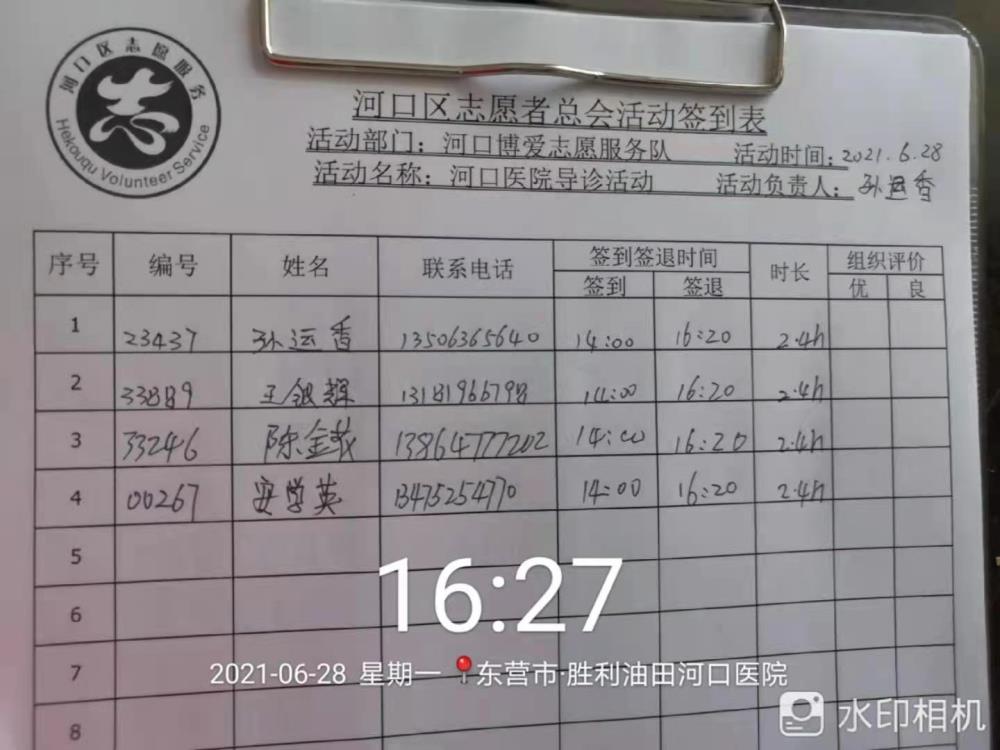 河口区志愿服务
志
Hekouqu Volunteer Service
河口区志愿者总会活动签到表
活动部门：河口博爱志愿服务队 活动时间：2021.6.28
活动名称：河口医院导诊活动 活动负责人：孙运香
序号 编号 姓名 联系电话 签到签退时间 时长 组织评价
签到 签退 优 良
1 23437 孙运香 13506365640 14:00 16:20 2.4h
2 33889 王银辉 13181966798 14:00 16:20 2.4h
3 33246 陈金 13864777202 14:00 16:20 2.4h
4 00267 安学英 13475254770 14:00 16:20 2.4h
5
6
7
8
16:27
2021-06-28 星期一 东营市·胜利油田河口医院
水印相机